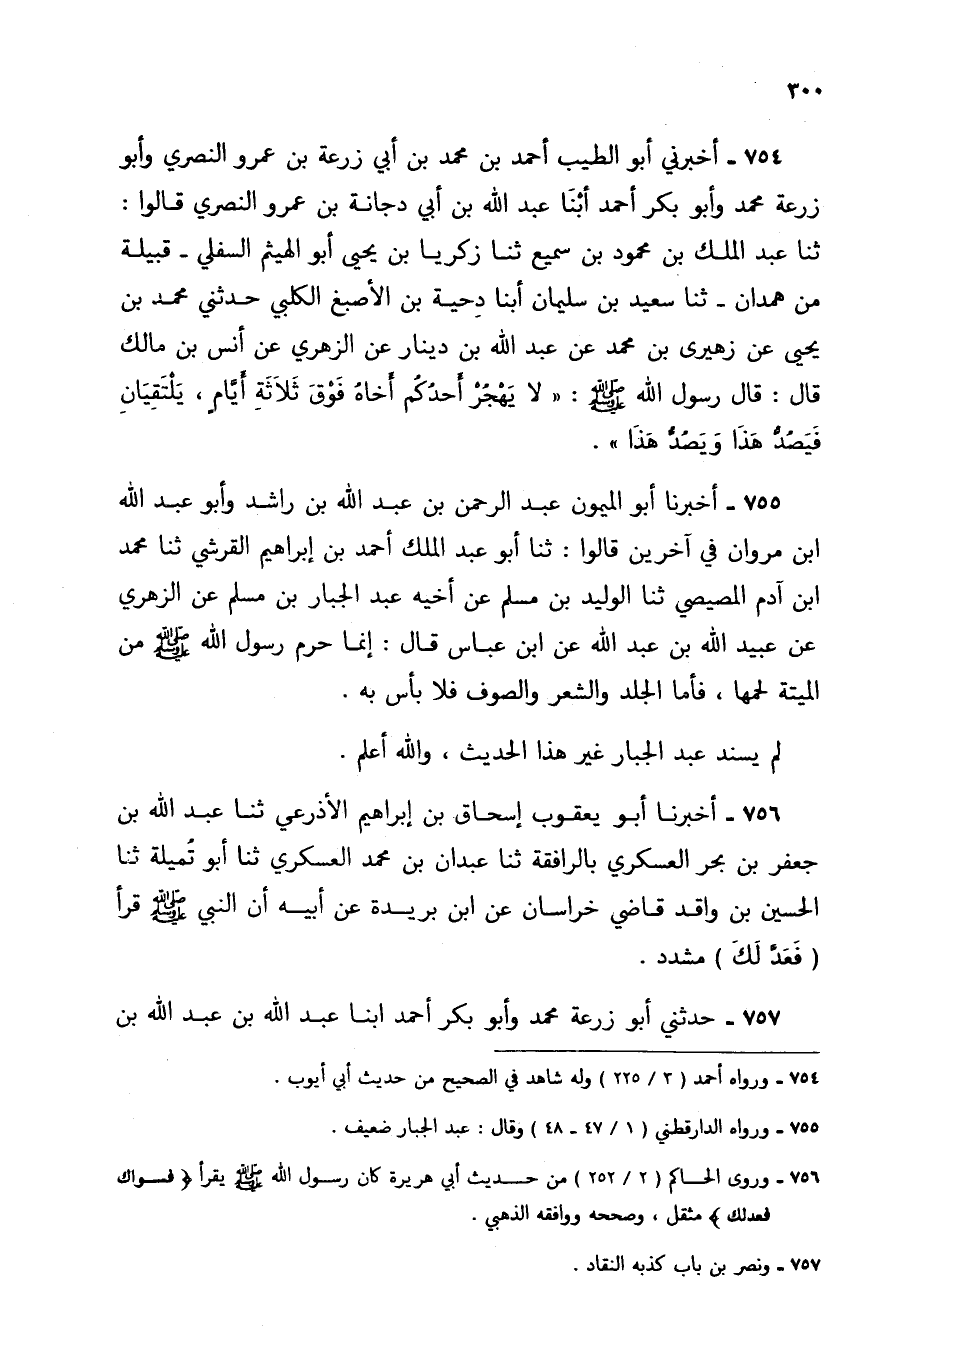 ٣٠٠
٧٥٤ ـ أخبرني أبو الطيب أحمد بن محمد بن أبي زرعة بن عمرو النصري وأبو
زرعة محمد وأبو بكر أحمد أبْنَا عبد الله بن أبي دجانة بن عمرو النصري قالوا :
ثنا عبد الملك بن محمود بن سميع ثنا زكريا بن يحيى أبو الهيثم السفلي ـ قبيلة
من همدان ـ ثنا سعيد بن سليمان أبنا دحية بن الأصبغ الكلبي حدثني محمد بن
يحيى عن زهيرى بن محمد عن عبد الله بن دينار عن الزهري عن أنس بن مالك
قال : قال رسول الله ﷺ : « لا يَهْجُرْ أحدُكُم أخاهُ فَوْقَ ثَلاَثَةِ أَيَّامٍ ، يَلْتَقِيَانِ
فَيَصُدُّ هَذَا وَيَصُدُّ هَذَا » .
٧٥٥ ـ أخبرنا أبو الميمون عبد الرحمن بن عبد الله بن راشد وأبو عبد الله
ابن مروان في آخرين قالوا : ثنا أبو عبد الملك أحمد بن إبراهيم القرشي ثنا محمد
ابن آدم المصيصي ثنا الوليد بن مسلم عن أخيه عبد الجبار بن مسلم عن الزهري
عن عبيد الله بن عبد الله عن ابن عباس قال : إنما حرم رسول الله ﷺ من
الميتة لحمها ، فأما الجلد والشعر والصوف فلا بأس به .
لم يسند عبد الجبار غير هذا الحديث ، والله أعلم .
٧٥٦ ـ أخبرنا أبو يعقوب إسحاق بن إبراهيم الأذرعي ثنا عبد الله بن
جعفر بن بحر العسكري بالرافقة ثنا عبدان بن محمد العسكري ثنا أبو تُميلة ثنا
الحسين بن واقد قاضي خراسان عن ابن بريدة عن أبيه أن النبي ﷺ قرأ
( فَعَدَّ لَكَ ) مشدد .
٧٥٧ ـ حدثني أبو زرعة محمد وأبو بكر أحمد ابنا عبد الله بن عبد الله بن
٧٥٤ ـ ورواه أحمد ( ٣ / ٢٢٥ ) وله شاهد في الصحيح من حديث أبي أيوب .
٧٥٥ ـ ورواه الدارقطني ( ١ / ٤٧ ـ ٤٨ ) وقال : عبد الجبار ضعيف .
٧٥٦ ـ وروى الحاكم ( ٢ / ٢٥٢ ) من حديث أبي هريرة كان رسول الله ﷺ يقرأ ﴿ فسواك
فعدلك ﴾ مثقل ، وصححه ووافقه الذهبي .
٧٥٧ ـ ونصر بن باب كذبه النقاد .